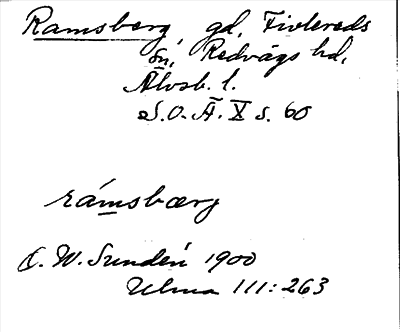 Ramsberg, gd, Fivlereds
sn, Redvägs hd,
Älvsb. l.
S.O.Ä. X s. 60
rámsbærg
C. W. Sundén 1900
Ulma 111:263